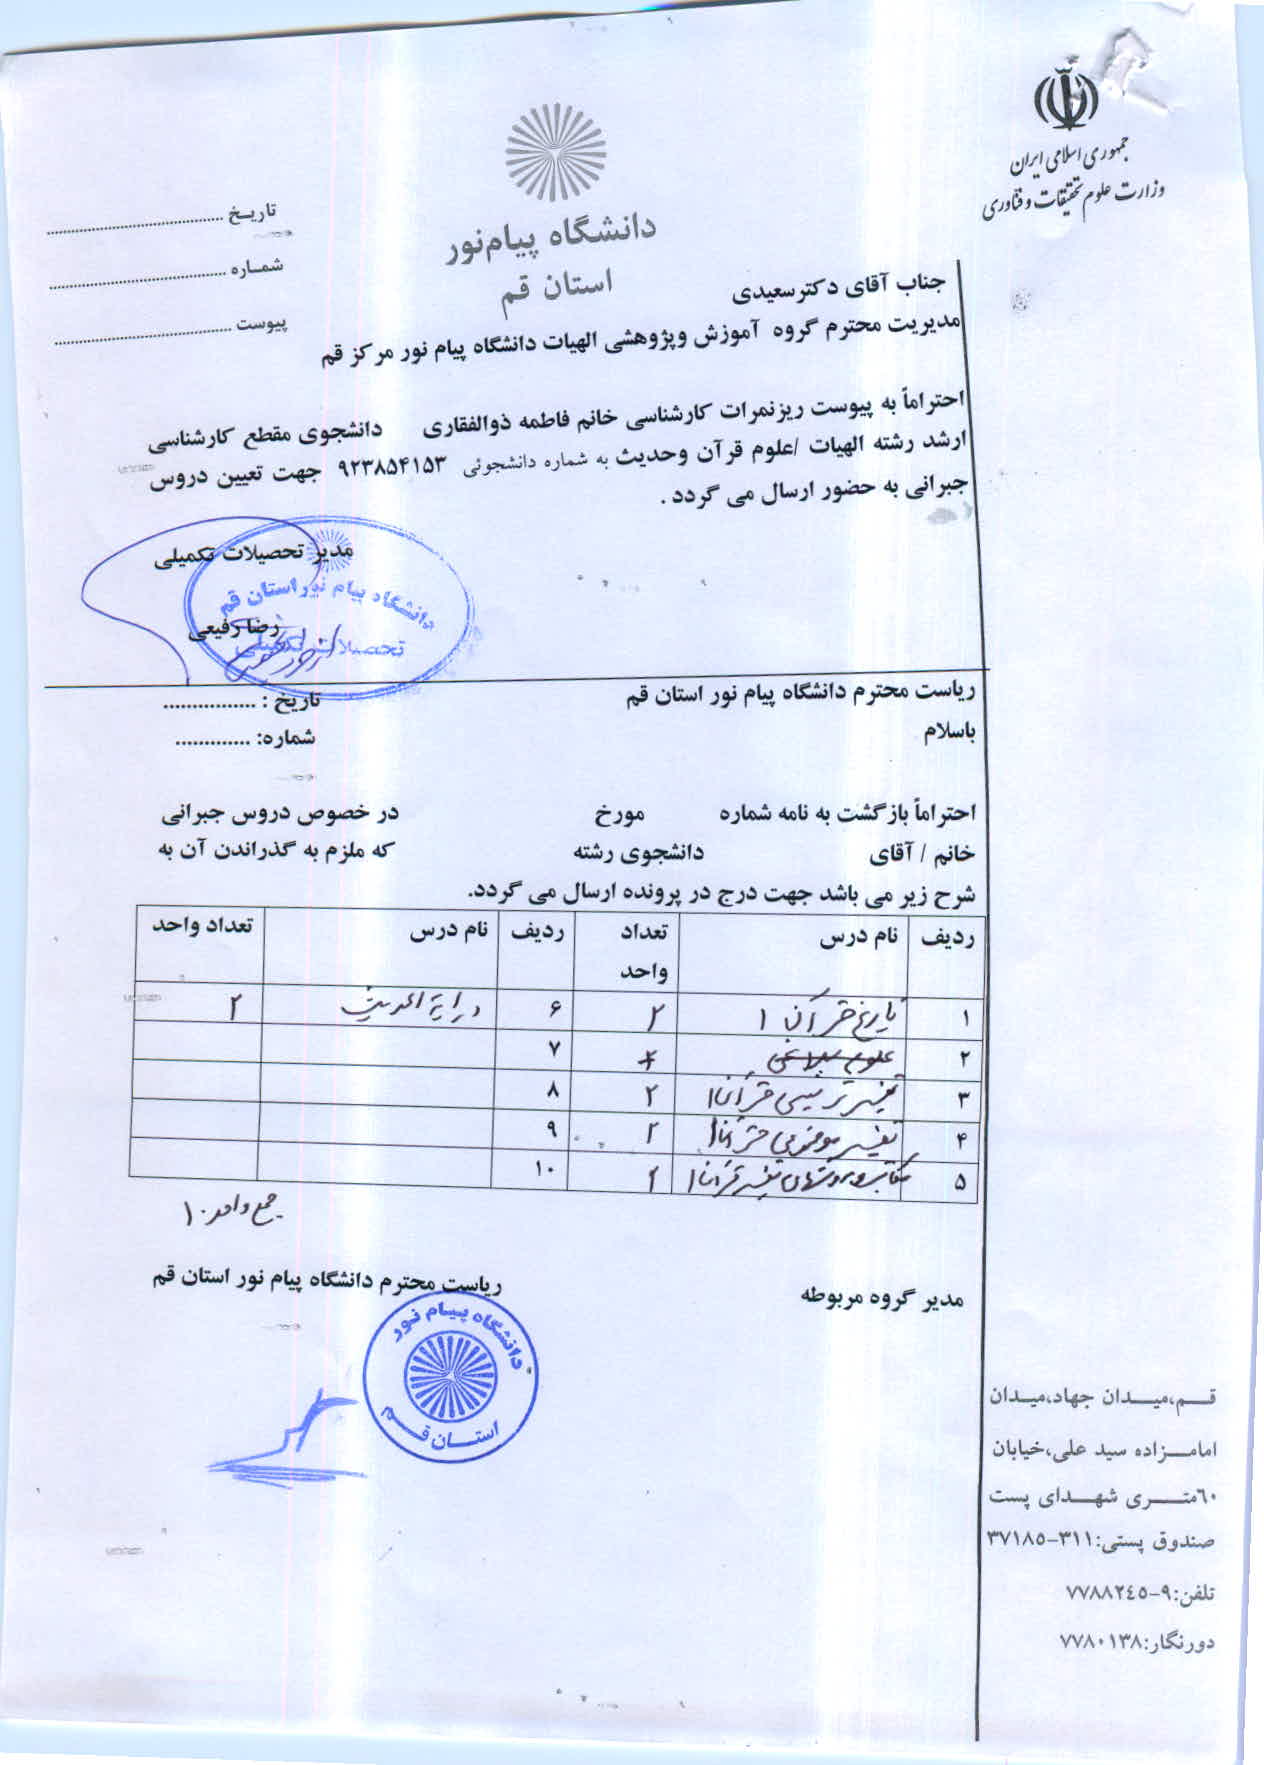 جمهوری اسلامی ایران
وزارت علوم تحقیقات و فناوری
دانشگاه پیام‌نور
استان قم
تاریـخ ........................................
شمـاره ........................................
پیوست ........................................
جناب آقای دکترسعیدی
مدیریت محترم گروه آموزش وپژوهشی الهیات دانشگاه پیام نور مرکز قم
احتراماً به پیوست ریزنمرات کارشناسی خانم فاطمه ذوالفقاری دانشجوی مقطع کارشناسی
ارشد رشته الهیات /علوم قرآن وحدیث به شماره دانشجوئی ۹۲۳۸۵۴۱۵۳ جهت تعیین دروس
جبرانی به حضور ارسال می گردد .
مدیر تحصیلات تکمیلی
دانشگاه پیام نور استان قم
رضا رفیعی
تحصیلات تکمیلی
ریاست محترم دانشگاه پیام نور استان قم
تاریخ : ................
باسلام
شماره: .............
احتراماً بازگشت به نامه شماره مورخ در خصوص دروس جبرانی
خانم / آقای دانشجوی رشته که ملزم به گذراندن آن به
شرح زیر می باشد جهت درج در پرونده ارسال می گردد.
ردیف نام درس تعداد واحد ردیف نام درس تعداد واحد
۱ تاریخ قرآن ۱ ۲ ۶ درایة الحدیث ۲
۲ علوم بلاغی ۴ ۷
۳ تفسیر ترتیبی قرآن۱ ۲ ۸
۴ تفسیر موضوعی قرآن۱ ۲ ۹
۵ مکاتب و روشهای تفسیر قرآن۱ ۲ ۱۰
جمع واحد ۱۰
مدیر گروه مربوطه
ریاست محترم دانشگاه پیام نور استان قم
دانشگاه پیـام نور
استـان قــم
قـم،میـدان جهاد،میـدان
امامـزاده سید علی،خیابان
۶۰متـری شهـدای پست
صندوق پستی:۳۱۱-۳۷۱۸۵
تلفن:۹-۷۷۸۸۲٤٥
دورنگار:۷۷۸۰۱۳۸